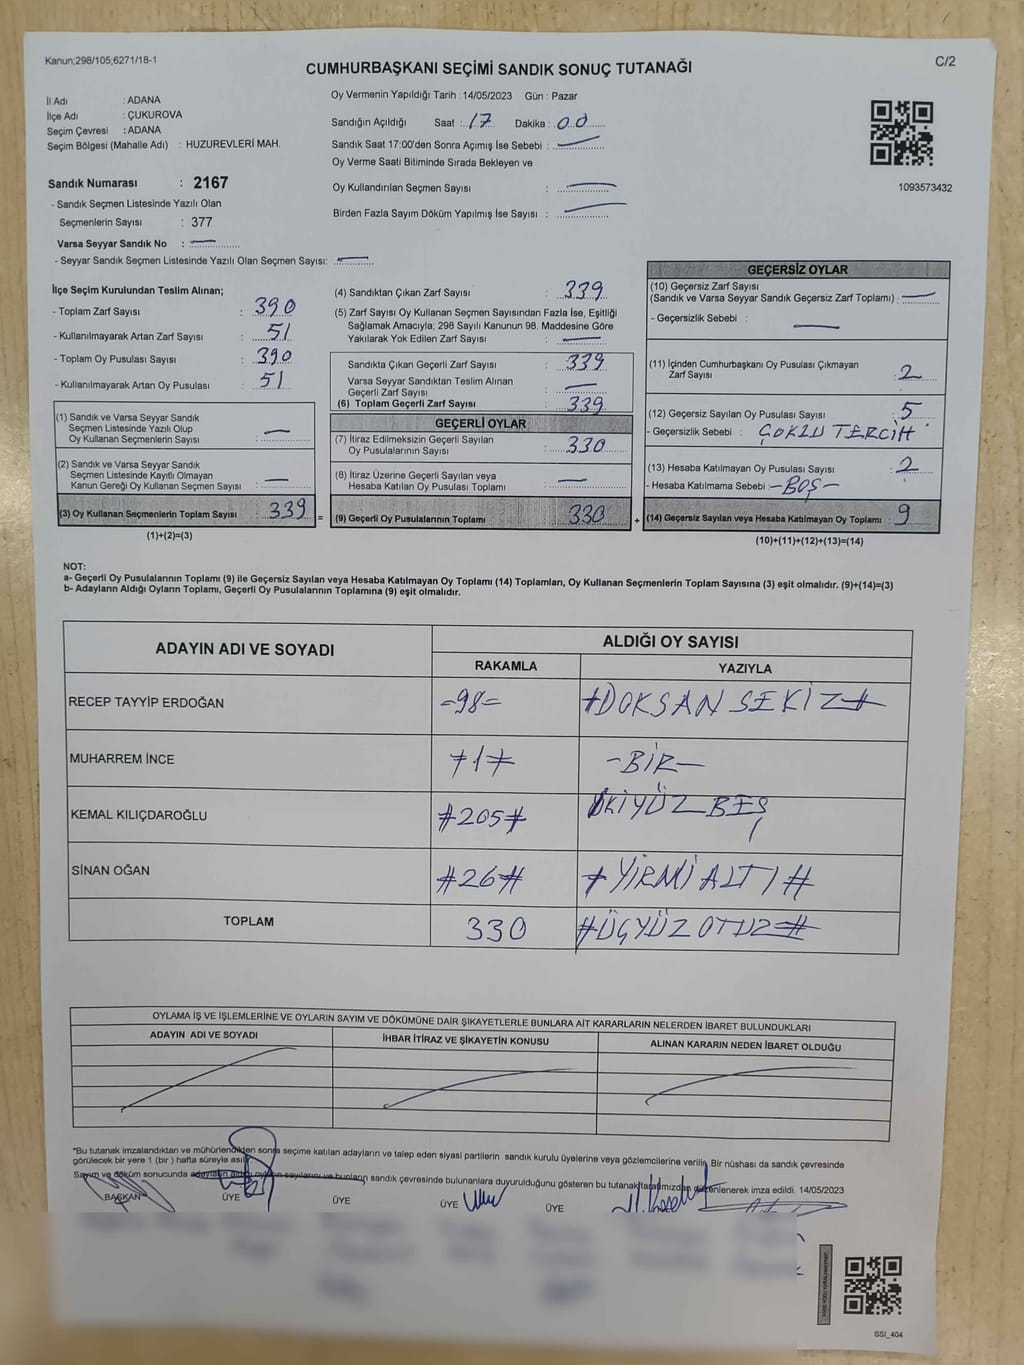 Kanun;298/105;6271/18-1
C/2
CUMHURBAŞKANI SEÇİMİ SANDIK SONUÇ TUTANAĞI
İl Adı : ADANA
İlçe Adı : ÇUKUROVA
Seçim Çevresi : ADANA
Seçim Bölgesi (Mahalle Adı) : HUZUREVLERİ MAH.
Sandık Numarası : 2167
- Sandık Seçmen Listesinde Yazılı Olan
Seçmenlerin Sayısı : 377
Varsa Seyyar Sandık No : —
- Seyyar Sandık Seçmen Listesinde Yazılı Olan Seçmen Sayısı: —
Oy Vermenin Yapıldığı Tarih :14/05/2023 Gün : Pazar
Sandığın Açıldığı Saat : 17 Dakika : 00
Sandık Saat 17:00'den Sonra Açımış İse Sebebi : —
Oy Verme Saati Bitiminde Sırada Bekleyen ve
Oy Kullandırılan Seçmen Sayısı : —
Birden Fazla Sayım Döküm Yapılmış İse Sayısı : —
1093573432
İlçe Seçim Kurulundan Teslim Alınan;
- Toplam Zarf Sayısı : 390
- Kullanılmayarak Artan Zarf Sayısı : 51
- Toplam Oy Pusulası Sayısı : 390
- Kullanılmayarak Artan Oy Pusulası : 51
(1) Sandık ve Varsa Seyyar Sandık
Seçmen Listesinde Yazılı Olup
Oy Kullanan Seçmenlerin Sayısı : —
(2) Sandık ve Varsa Seyyar Sandık
Seçmen Listesinde Kayıtlı Olmayan
Kanun Gereği Oy Kullanan Seçmen Sayısı : —
(3) Oy Kullanan Seçmenlerin Toplam Sayısı : 339 =
(1)+(2)=(3)
(4) Sandıktan Çıkan Zarf Sayısı : 339
(5) Zarf Sayısı Oy Kullanan Seçmen Sayısından Fazla İse, Eşitliği
Sağlamak Amacıyla; 298 Sayılı Kanunun 98. Maddesine Göre
Yakılarak Yok Edilen Zarf Sayısı : —
Sandıkta Çıkan Geçerli Zarf Sayısı : 339
Varsa Seyyar Sandıktan Teslim Alınan
Geçerli Zarf Sayısı : —
(6) Toplam Geçerli Zarf Sayısı : 339
GEÇERLİ OYLAR
(7) İtiraz Edilmeksizin Geçerli Sayılan
Oy Pusulalarının Sayısı : 330
(8) İtiraz Üzerine Geçerli Sayılan veya
Hesaba Katılan Oy Pusulası Toplamı : —
(9) Geçerli Oy Pusulalarının Toplamı : 330 +
GEÇERSİZ OYLAR
(10) Geçersiz Zarf Sayısı
(Sandık ve Varsa Seyyar Sandık Geçersiz Zarf Toplamı) : —
- Geçersizlik Sebebi : —
(11) İçinden Cumhurbaşkanı Oy Pusulası Çıkmayan
Zarf Sayısı : 2
(12) Geçersiz Sayılan Oy Pusulası Sayısı : 5
- Geçersizlik Sebebi : ÇOKLU TERCİH
(13) Hesaba Katılmayan Oy Pusulası Sayısı : 2
- Hesaba Katılmama Sebebi : - BOŞ -
(14) Geçersiz Sayılan veya Hesaba Katılmayan Oy Toplamı : 9
(10)+(11)+(12)+(13)=(14)
NOT:
a- Geçerli Oy Pusulalarının Toplamı (9) ile Geçersiz Sayılan veya Hesaba Katılmayan Oy Toplamı (14) Toplamları, Oy Kullanan Seçmenlerin Toplam Sayısına (3) eşit olmalıdır. (9)+(14)=(3)
b- Adayların Aldığı Oyların Toplamı, Geçerli Oy Pusulalarının Toplamına (9) eşit olmalıdır.
ADAYIN ADI VE SOYADI ALDIĞI OY SAYISI
RAKAMLA YAZIYLA
RECEP TAYYİP ERDOĞAN =98= #DOKSAN SEKİZ#
MUHARREM İNCE #1# -BİR-
KEMAL KILIÇDAROĞLU #205# İKİYÜZ BEŞ
SİNAN OĞAN #26# #YİRMİ ALTI#
TOPLAM 330 #ÜÇYÜZ OTUZ#
OYLAMA İŞ VE İŞLEMLERİNE VE OYLARIN SAYIM VE DÖKÜMÜNE DAİR ŞİKAYETLERLE BUNLARA AİT KARARLARIN NELERDEN İBARET BULUNDUKLARI
ADAYIN ADI VE SOYADI İHBAR İTİRAZ VE ŞİKAYETİN KONUSU ALINAN KARARIN NEDEN İBARET OLDUĞU
*Bu tutanak imzalandıktan ve mühürlendikten sonra seçime katılan adayların ve talep eden siyasi partilerin sandık kurulu üyelerine veya gözlemcilerine verilir. Bir nüshası da sandık çevresinde
görülecek bir yere 1 (bir ) hafta süreyle asılır.
Sayım ve döküm sonucunda adayların aldığı oyların sayılarını ve bunların sandık çevresinde bulunanlara duyurulduğunu gösteren bu tutanak tarafımızdan düzenlenerek imza edildi. 14/05/2023
BAŞKAN ÜYE ÜYE ÜYE ÜYE
SSI_404